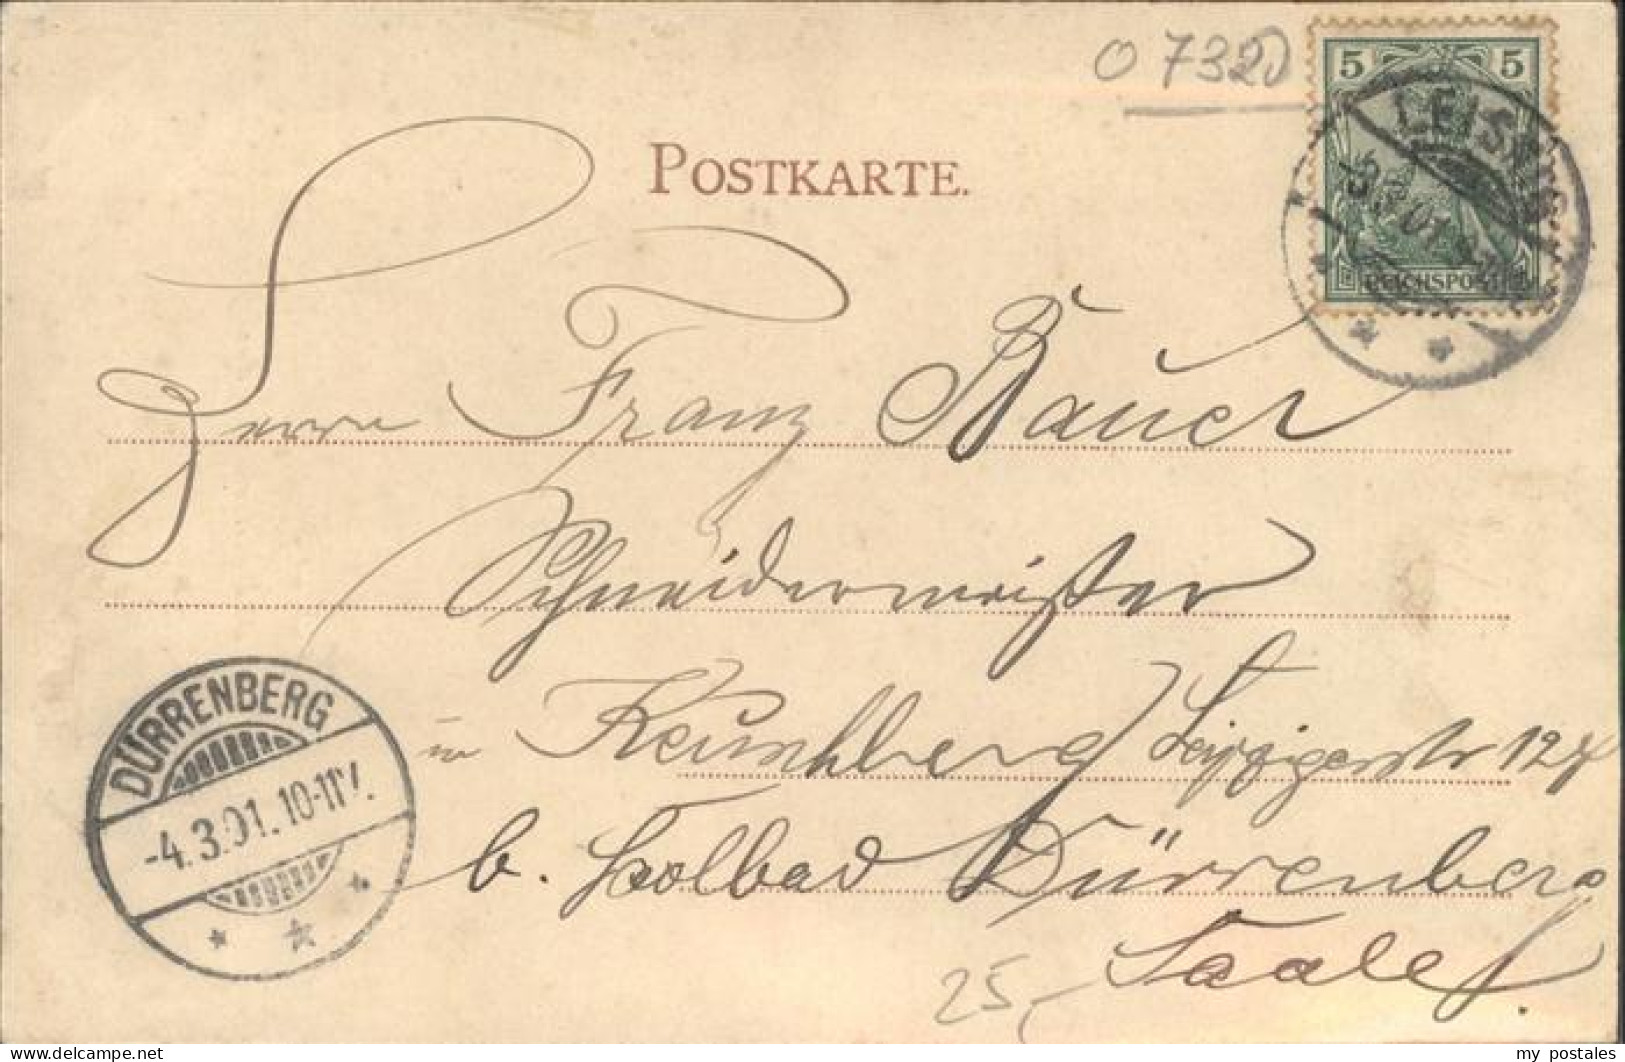 O 7320
5 5
LEISNIG
3.3.01
REICHSPOST
POSTKARTE.
Herrn Franz Bauer
Schneidermeister
in Keuschberg Leipzigerstr 12
b. Soolbad Dürrenberg
Saale.
DÜRRENBERG
-4.3.01.10-11V.
25,-
my postales